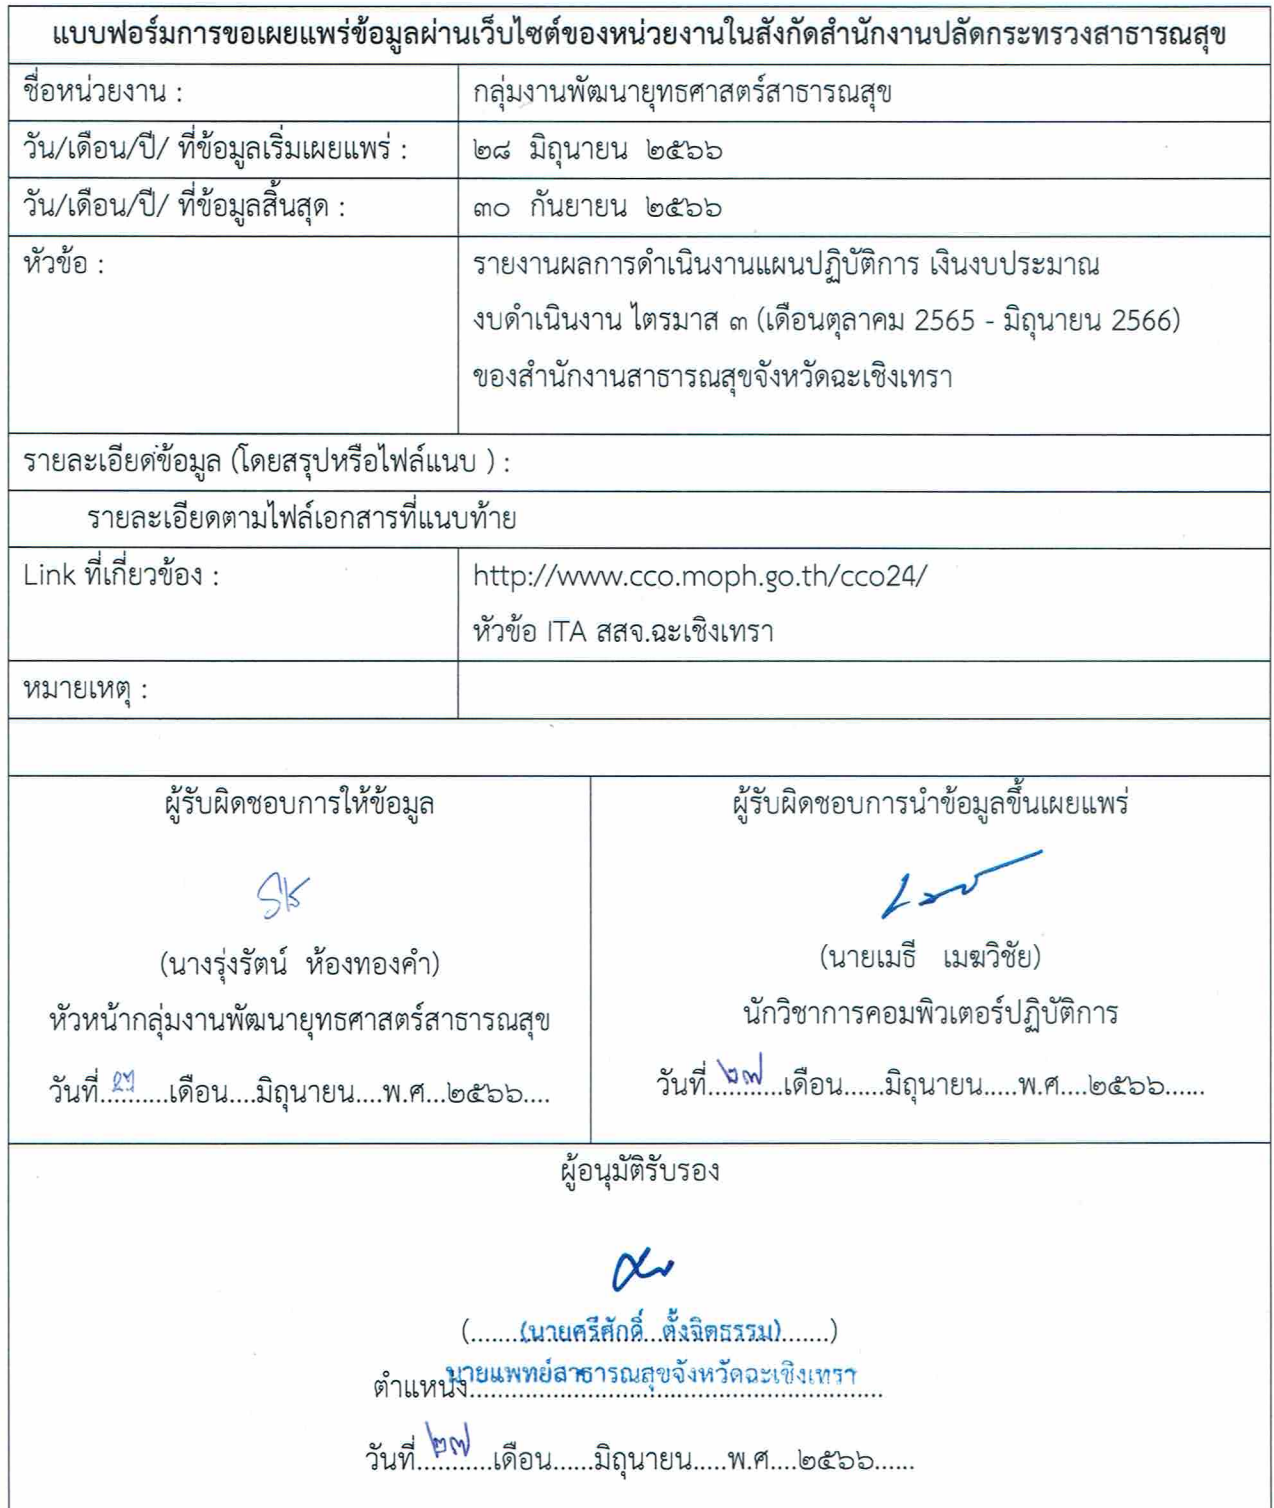 แบบฟอร์มการขอเผยแพร่ข้อมูลผ่านเว็บไซต์ของหน่วยงานในสังกัดสำนักงานปลัดกระทรวงสาธารณสุข
ชื่อหน่วยงาน : กลุ่มงานพัฒนายุทธศาสตร์สาธารณสุข
วัน/เดือน/ปี/ ที่ข้อมูลเริ่มเผยแพร่ : ๒๘ มิถุนายน ๒๕๖๖
วัน/เดือน/ปี/ ที่ข้อมูลสิ้นสุด : ๓๐ กันยายน ๒๕๖๖
หัวข้อ : รายงานผลการดำเนินงานแผนปฏิบัติการ เงินงบประมาณ
งบดำเนินงาน ไตรมาส ๓ (เดือนตุลาคม 2565 - มิถุนายน 2566)
ของสำนักงานสาธารณสุขจังหวัดฉะเชิงเทรา
รายละเอียดข้อมูล (โดยสรุปหรือไฟล์แนบ ) :
รายละเอียดตามไฟล์เอกสารที่แนบท้าย
Link ที่เกี่ยวข้อง : http://www.cco.moph.go.th/cco24/
หัวข้อ ITA สสจ.ฉะเชิงเทรา
หมายเหตุ :
ผู้รับผิดชอบการให้ข้อมูล
(นางรุ่งรัตน์ ห้องทองคำ)
หัวหน้ากลุ่มงานพัฒนายุทธศาสตร์สาธารณสุข
วันที่..........เดือน....มิถุนายน....พ.ศ...๒๕๖๖....
ผู้รับผิดชอบการนำข้อมูลขึ้นเผยแพร่
(นายเมธี เมฆวิชัย)
นักวิชาการคอมพิวเตอร์ปฏิบัติการ
วันที่..๒๗..เดือน......มิถุนายน.....พ.ศ....๒๕๖๖......
ผู้อนุมัติรับรอง
(.......(นายศรีศักดิ์ ตั้งจิตธรรม).......)
ตำแหน่ง นายแพทย์สาธารณสุขจังหวัดฉะเชิงเทรา
วันที่..๒๗..เดือน......มิถุนายน.....พ.ศ....๒๕๖๖......